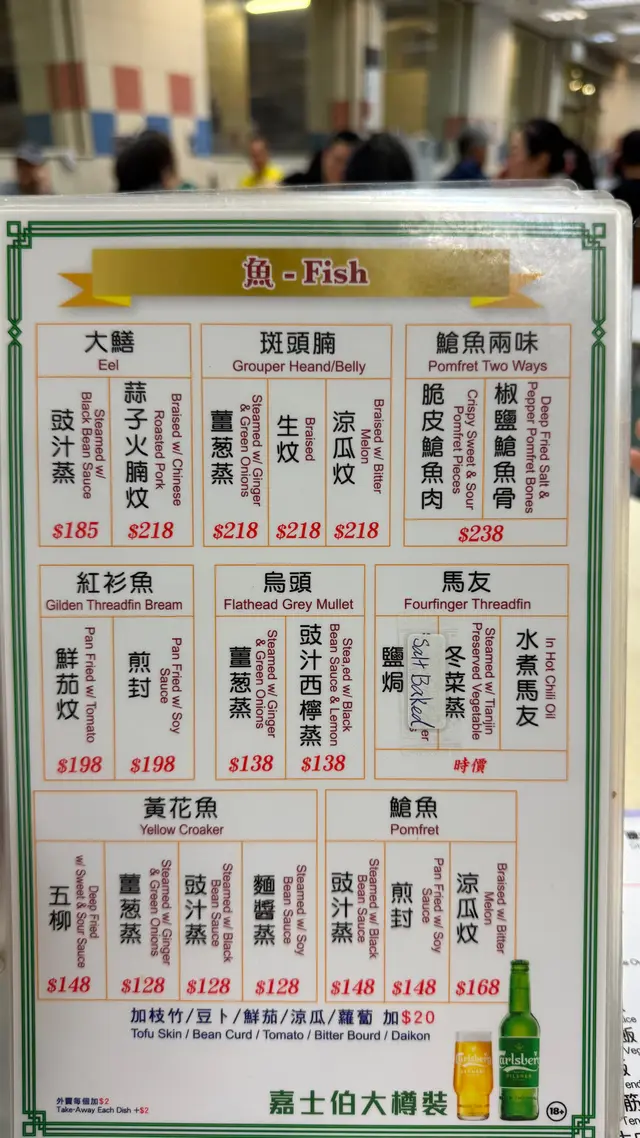 魚 - Fish
大鱔
Eel
豉汁蒸
Steamed w/
Black Bean Sauce
$185
蒜子火腩炆
Braised w/ Chinese
Roasted Pork
$218
斑頭腩
Grouper Heand/Belly
薑葱蒸
Steamed w/ Ginger
& Green Onions
$218
生炆
Braised
$218
涼瓜炆
Braised w/ Bitter
Melon
$218
鯧魚兩味
Pomfret Two Ways
脆皮鯧魚肉
Crispy Sweet & Sour
Pomfret Pieces
椒鹽鯧魚骨
Deep Fried Salt &
Pepper Pomfret Bones
$238
紅衫魚
Gilden Threadfin Bream
鮮茄炆
Pan Fried w/ Tomato
$198
煎封
Pan Fried w/ Soy
Sauce
$198
烏頭
Flathead Grey Mullet
薑葱蒸
Steamed w/ Ginger
& Green Onions
$138
豉汁西檸蒸
Stea,ed w/ Black
Bean Sauce & Lemon
$138
馬友
Fourfinger Threadfin
鹽焗
Salt Baked
er
冬菜蒸
Steamed w/ Tianjin
Preserved Vegetable
水煮馬友
In Hot Chili Oil
時價
黃花魚
Yellow Croaker
五柳
Deep Fried
w/ Sweet & Sour Sauce
$148
薑葱蒸
Steamed w/ Ginger
& Green Onions
$128
豉汁蒸
Steamed w/ Black
Bean Sauce
$128
麵醬蒸
Steamed w/ Soy
Bean Sauce
$128
鯧魚
Pomfret
豉汁蒸
Steamed w/ Black
Bean Sauce
$148
煎封
Pan Fried w/ Soy
Sauce
$148
涼瓜炆
Braised w/ Bitter
Melon
$168
加枝竹/豆卜/鮮茄/涼瓜/蘿蔔 加$20
Tofu Skin / Bean Curd / Tomato / Bitter Bourd / Daikon
外賣每個加$2
Take-Away Each Dish +$2
嘉士伯大樽裝
Carlsberg
Carlsberg
PILSNER
18+